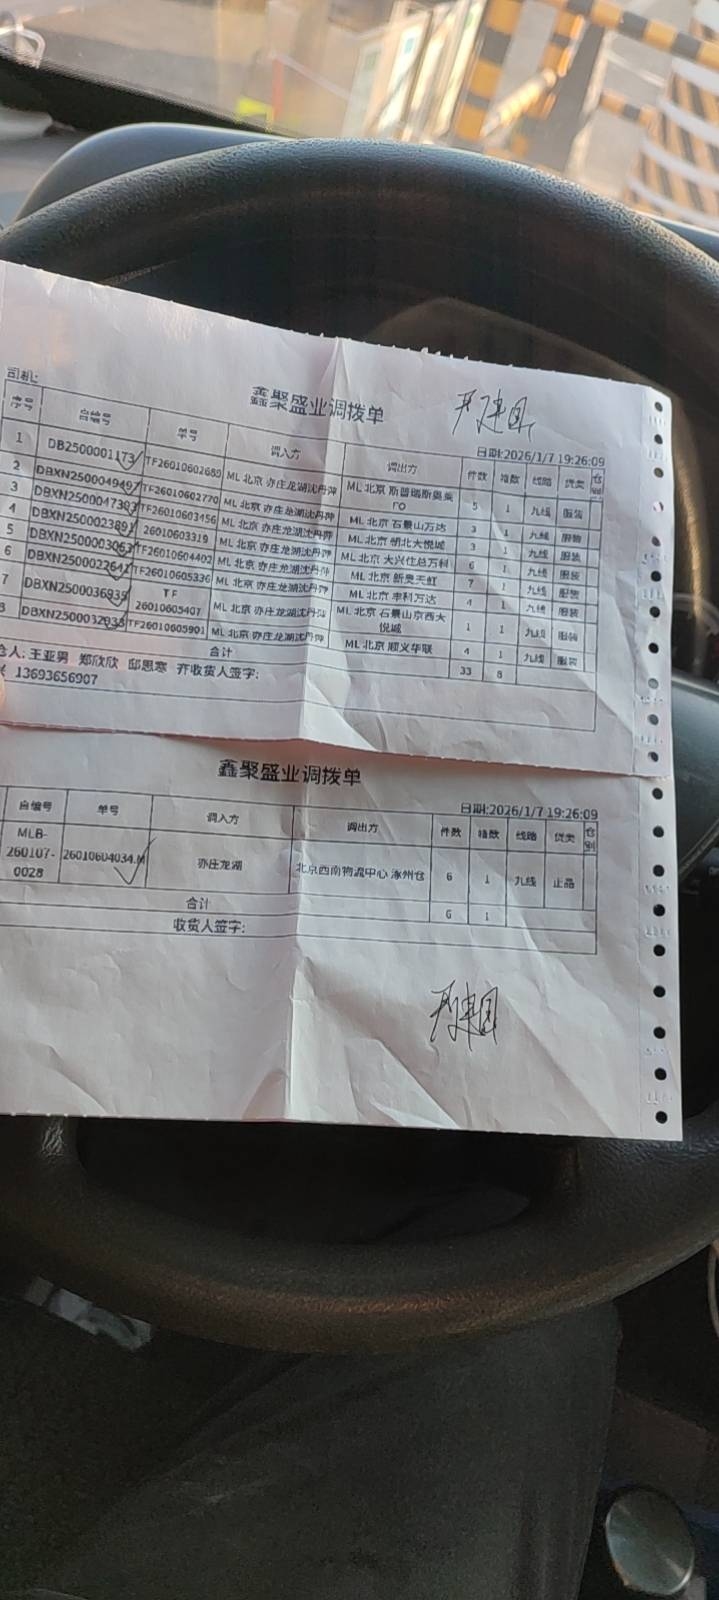 司机:
鑫聚盛业调拨单
日期:2026/1/7 19:26:09
序号 自编号 单号 调入方 调出方 件数 箱数 线路 货类 仓别
1 DB2500001173 TF26010602689 ML 北京 亦庄龙湖沈丹萍 ML 北京 斯普瑞斯奥莱 5 1 九线 服装
2 DBXN2500049497 TF26010602770 ML 北京 亦庄龙湖沈丹萍 ML 北京 石景山万达 3 1 九线 服装
3 DBXN2500047303 TF26010603456 ML 北京 亦庄龙湖沈丹萍 ML 北京 朝北大悦城 3 1 九线 服装
4 DBXN2500023891 26010603319 ML 北京 亦庄龙湖沈丹萍 ML 北京 大兴住总万科 6 1 九线 服装
5 DBXN2500003063 TF26010604402 ML 北京 亦庄龙湖沈丹萍 ML 北京 新奥天虹 7 1 九线 服装
6 DBXN2500022641 TF26010605336 ML 北京 亦庄龙湖沈丹萍 ML 北京 丰科万达 4 1 九线 服装
7 DBXN2500036935 TF 26010605407 ML 北京 亦庄龙湖沈丹萍 ML 北京 石景山京西大悦城 1 1 九线 服装
8 DBXN2500032933 TF26010605901 ML 北京 亦庄龙湖沈丹萍 ML 北京 顺义华联 4 1 九线 服装
合计 33 8
人: 王亚男 郑欣欣 邸思寒 乔收货人签字:
13693656907
鑫聚盛业调拨单
日期:2026/1/7 19:26:09
自编号 单号 调入方 调出方 件数 箱数 线路 货类 仓别
MLB-260107-0028 26010604034.M 亦庄龙湖 北京西南物流中心 涿州仓 6 1 九线 正品
合计 6 1
收货人签字: